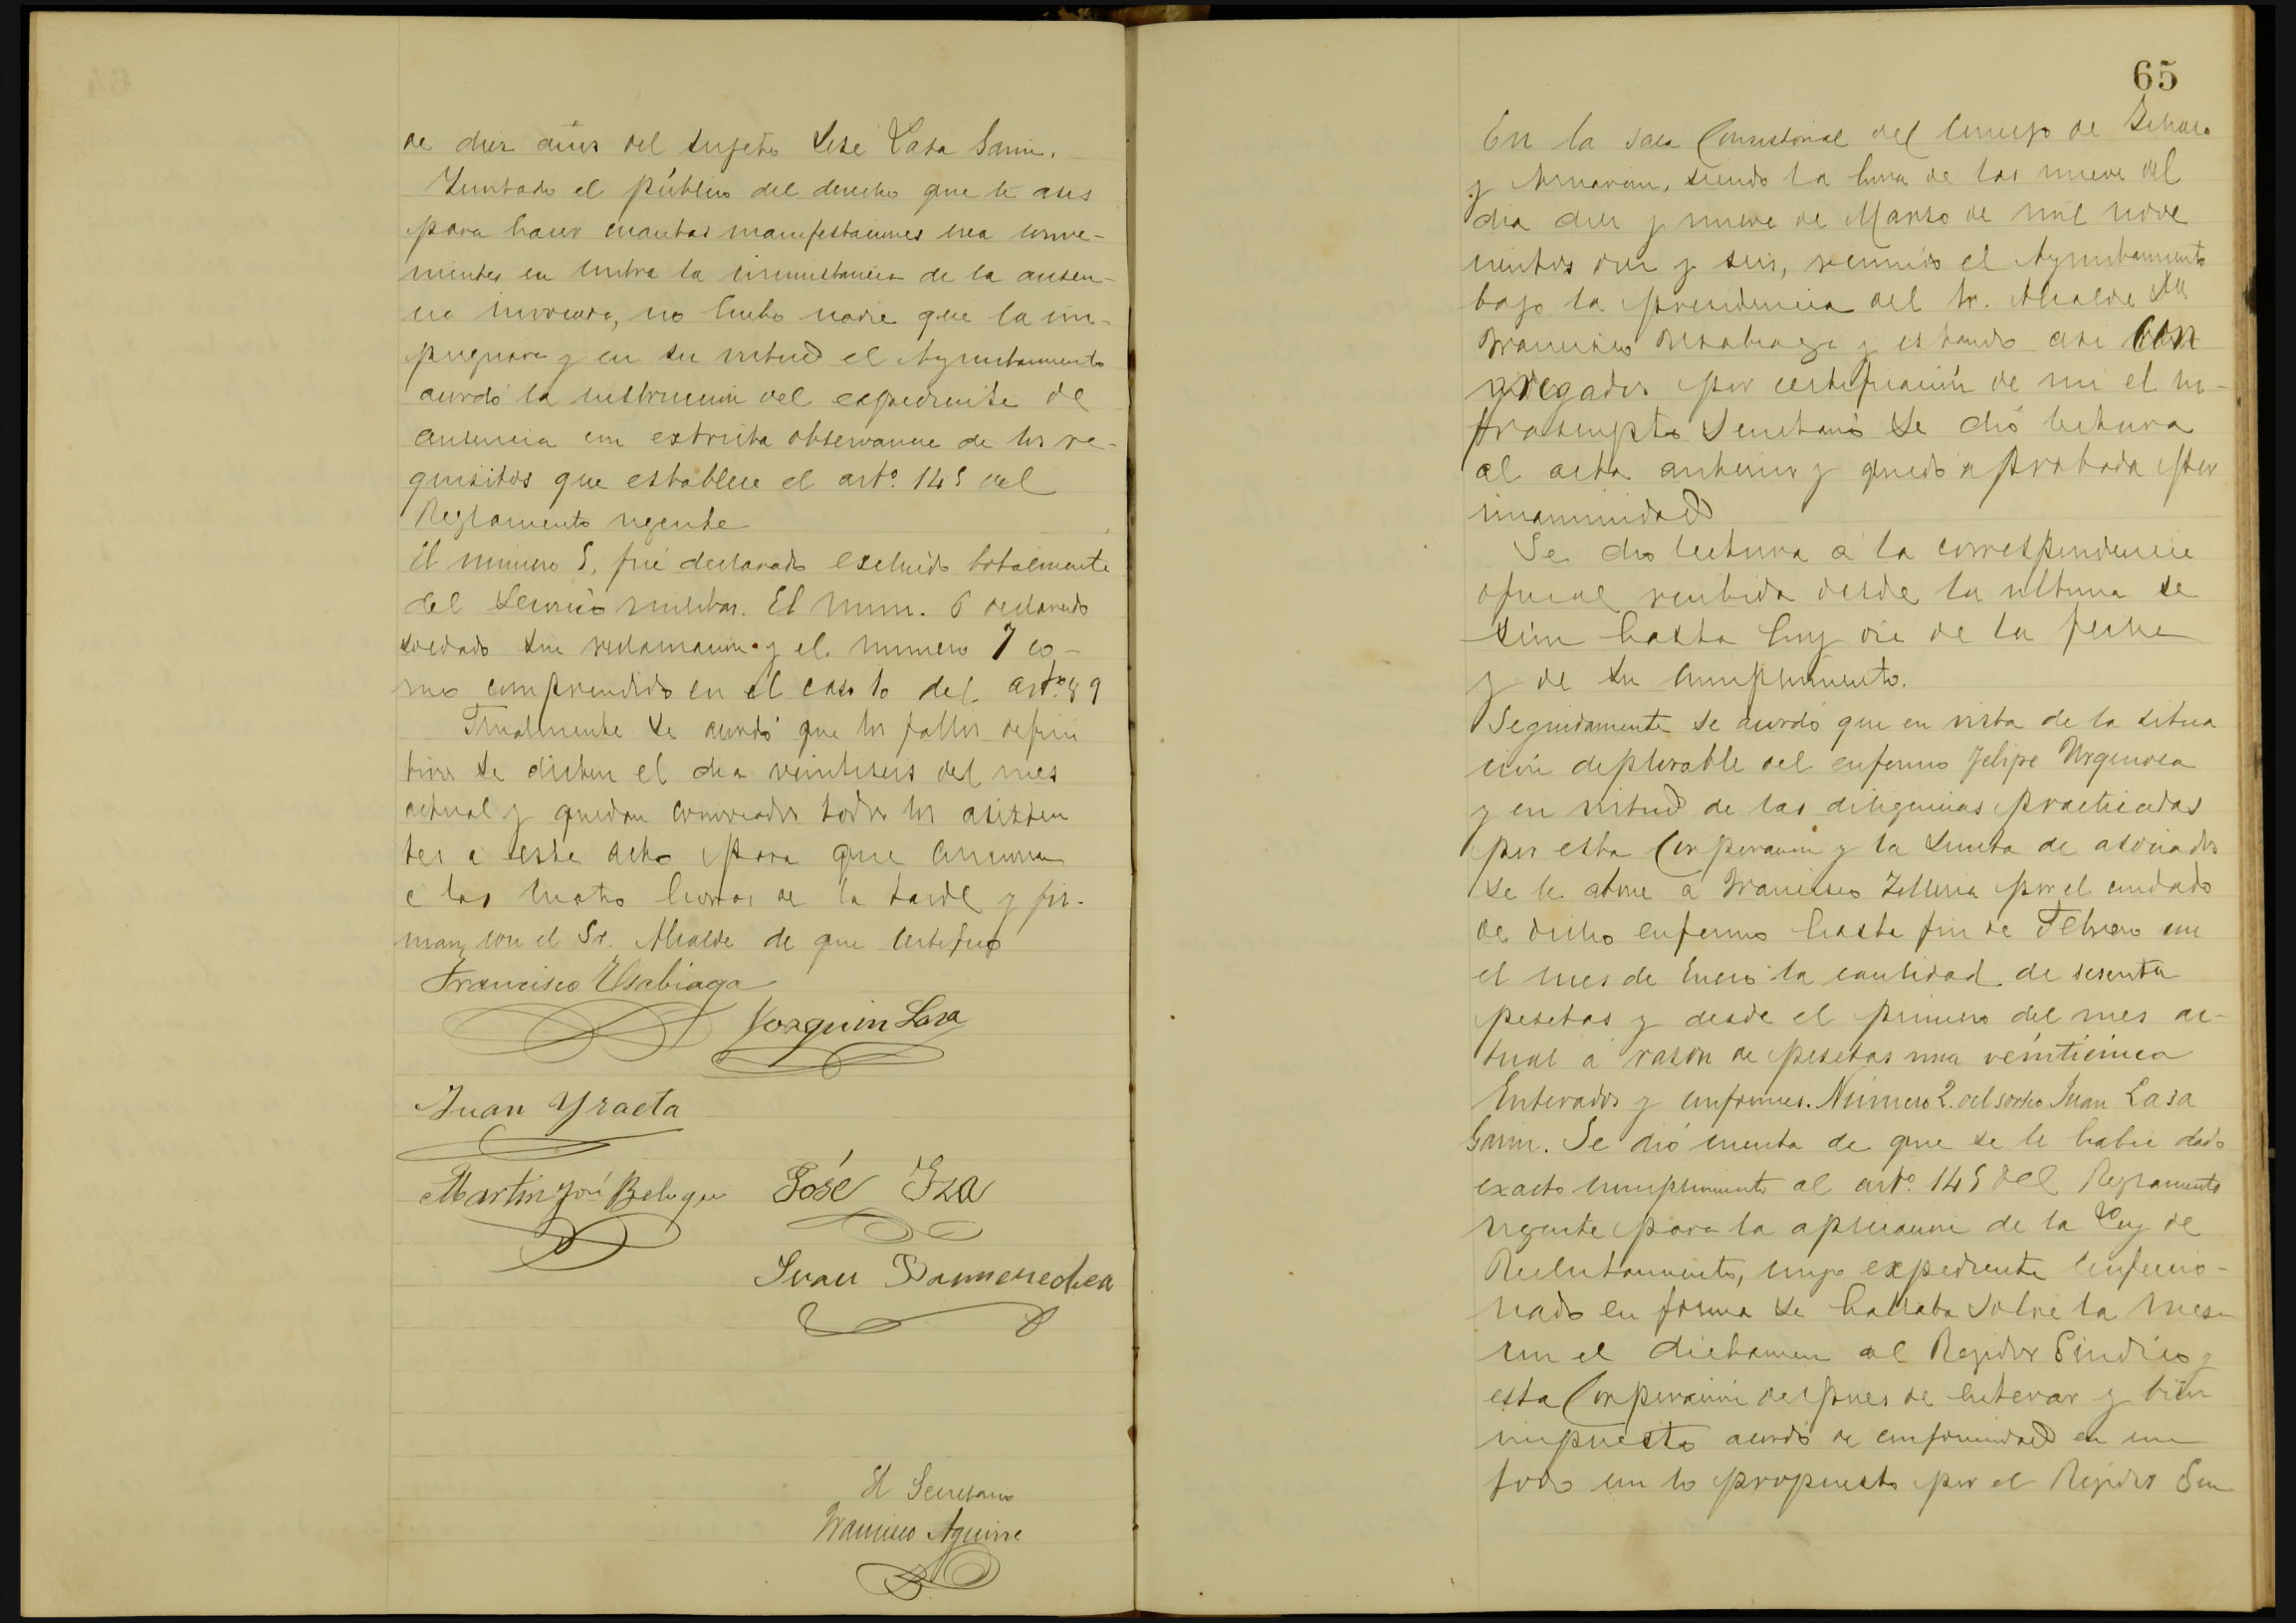 de diez años del sujeto José Lasa Garin.
Invitado el público del derecho que le asis
para hacer cuantas manifestaciones crea conve-
nientes en contra la circunstancia de la ausen-
cia invocada, no hubo nadie que la im-
pugnara y en su virtud el Ayuntamiento
acordó la instruccion del expediente de
ausencia con estricta observancia de los re-
quisitos que establece el artº. 145 del
Reglamento vigente
El numero 5, fué declarado excluido totalmente
del servicio militar. El num. 6 declarado
soldado sin reclamacion y el numero 7 co-
mo comprendido en el caso 1o del artº. 89
Finalmente se acordó que los fallos defini
tivos se dicten el dia veintiseis del mes
actual y quedan convocados todos los asisten
tes a este acto para que concurran
a las cuatro horas de la tarde y fir-
man con el Sr. Alcalde de que certifico
Francisco Usabiaga
Joaquin Lasa
Juan Yraeta
Martin José Beloqui José Iza
Juan Barrenechea
El Secretario
Francisco Aguirre
65
En la sala Consistorial del Concejo de
y siendo la hora de las nueve del
dia diez y nueve de Marzo de mil nove
cientos diez y seis, reunido el Ayuntamiento
bajo la presidencia del Sr. Alcalde Dn
Francisco Usabiaga y estando asi con
gregados por certificación de mi el in-
frascripto Secretario se dió lectura
al acta anterior y quedó aprobada por
unanimidad
Se dio lectura a la correspondencia
oficial recibida desde la ultima se
sion hasta hoy dia de la fecha
y de su cumplimiento.
Seguidamente se acordó que en vista de la situa
ción deplorable del enfermo Felipe Urquiola
y en virtud de las diligencias practicadas
por esta Corporacion y la Junta de asociados
se le abone a Francisco Telleria por el cuidado
de dicho enfermo hasta fin de Febrero con
el mes de Enero la cantidad de sesenta
pesetas y desde el primero del mes ac-
tual á razon de pesetas una veinticinco
Enterados y conformes. Número 2. del sorteo Juan Lasa
Garin. Se dió cuenta de que se le habia dado
exacto cumplimiento al artº. 145 del Reglamento
vigente para la aplicacion de la Ley de
Reclutamiento, cuyo expediente confeccio-
nado en forma se hallaba sobre la mesa
con el dictamen al Regidor Sindico y
esta Corporación despues de enterar y bien
impuesto acordó de conformidad en un
todo con lo propuesto por el Regidor Sin